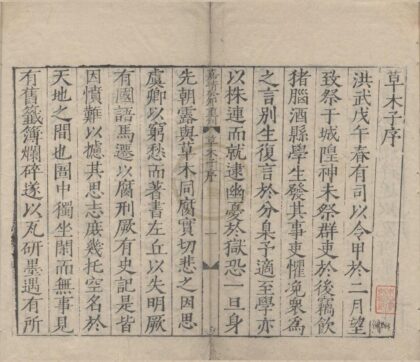 草木子序
洪武戊午春有司以令甲於二月望
致祭于城隍神未祭群吏於後竊飲
猪腦酒縣學生發其事吏懼浼衆為
之言別生復言於分臬予適至學亦
以株連而就逮幽憂於獄恐一旦身
草木子序 一
先朝露與草木同腐實切悲之因思
虞卿以窮愁而著書左丘以失明厥
有國語馬遷以腐刑厥有史記是皆
因憤難以攄其思志庶幾托空名於
天地之間也圄中獨坐閑而無事見
有舊籤簿爛碎遂以瓦研墨遇有所